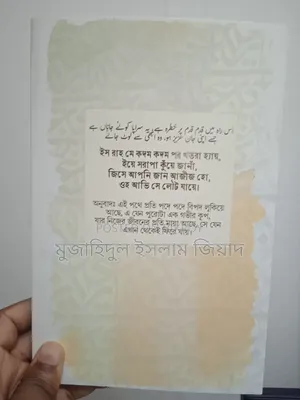 اس راہ میں قدم قدم پر خطرہ ہے یہ سراپا کوئے جاناں ہے
جسے اپنی جان عزیز ہو، وہ ابھی سے لوٹ جائے
ইস রাহ মে কদম কদম পর খতরা হ্যায়,
ইয়ে সরাপা কুঁয়ে জানাঁ,
জিসে আপনি জান আজীজ হো,
ওহ আভি সে লৌট যায়ে।
অনুবাদঃ এই পথে প্রতি পদে পদে বিপদ লুকিয়ে
আছে, এ যেন পুরোটা এক গভীর কূপ,
যার নিজের জীবনের প্রতি মায়া আছে, সে যেন
এখান থেকেই ফিরে যায়।
মুজাহিদুল ইসলাম জিয়াদ